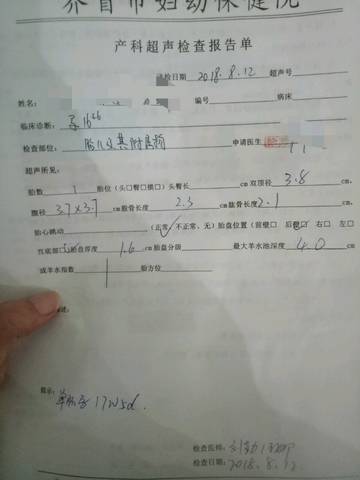 市妇幼保健院
产科超声检查报告单
检日期 2018.8.12 超声号
姓名: 编号 病床
临床诊断: 孕16+6
检查部位: 胎儿及其附属物 申请医生
超声所见:
胎数 1 胎位(头口臀口横口)头臀长 cm双顶径 3.8 cm
腹径 3.7×3.7 cm股骨长度 2.3 cm肱骨长度 2.1 cm
胎心跳动 (正常✓不正常、无)胎盘位置(前壁口 后壁口 右口 左口
宫底部 胎盘厚度 1.6 cm胎盘分级 最大羊水池深度 4.0 cm
或羊水指数 胎方位
述:
提示:
单胎孕17W5d.
检查医师:
检查日期: 2018.8.12